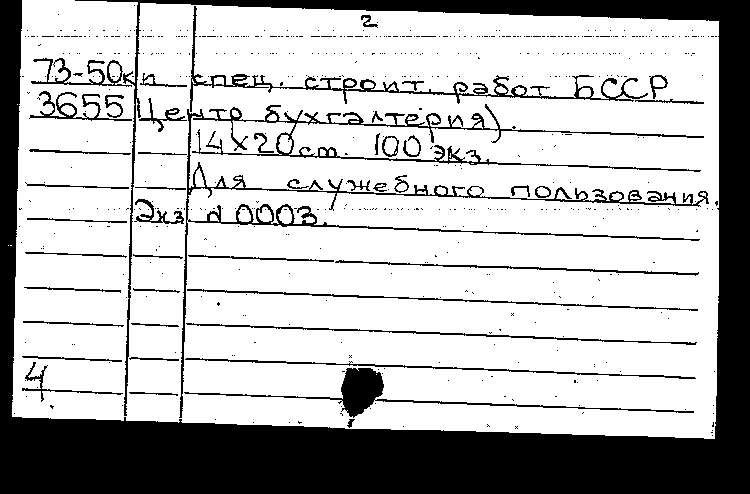 2
73-50кп спец. строит. работ БССР
3655 Центр бухгалтерия).
14х20см. 100 экз.
Для служебного пользования.
Экз № 0003.
4